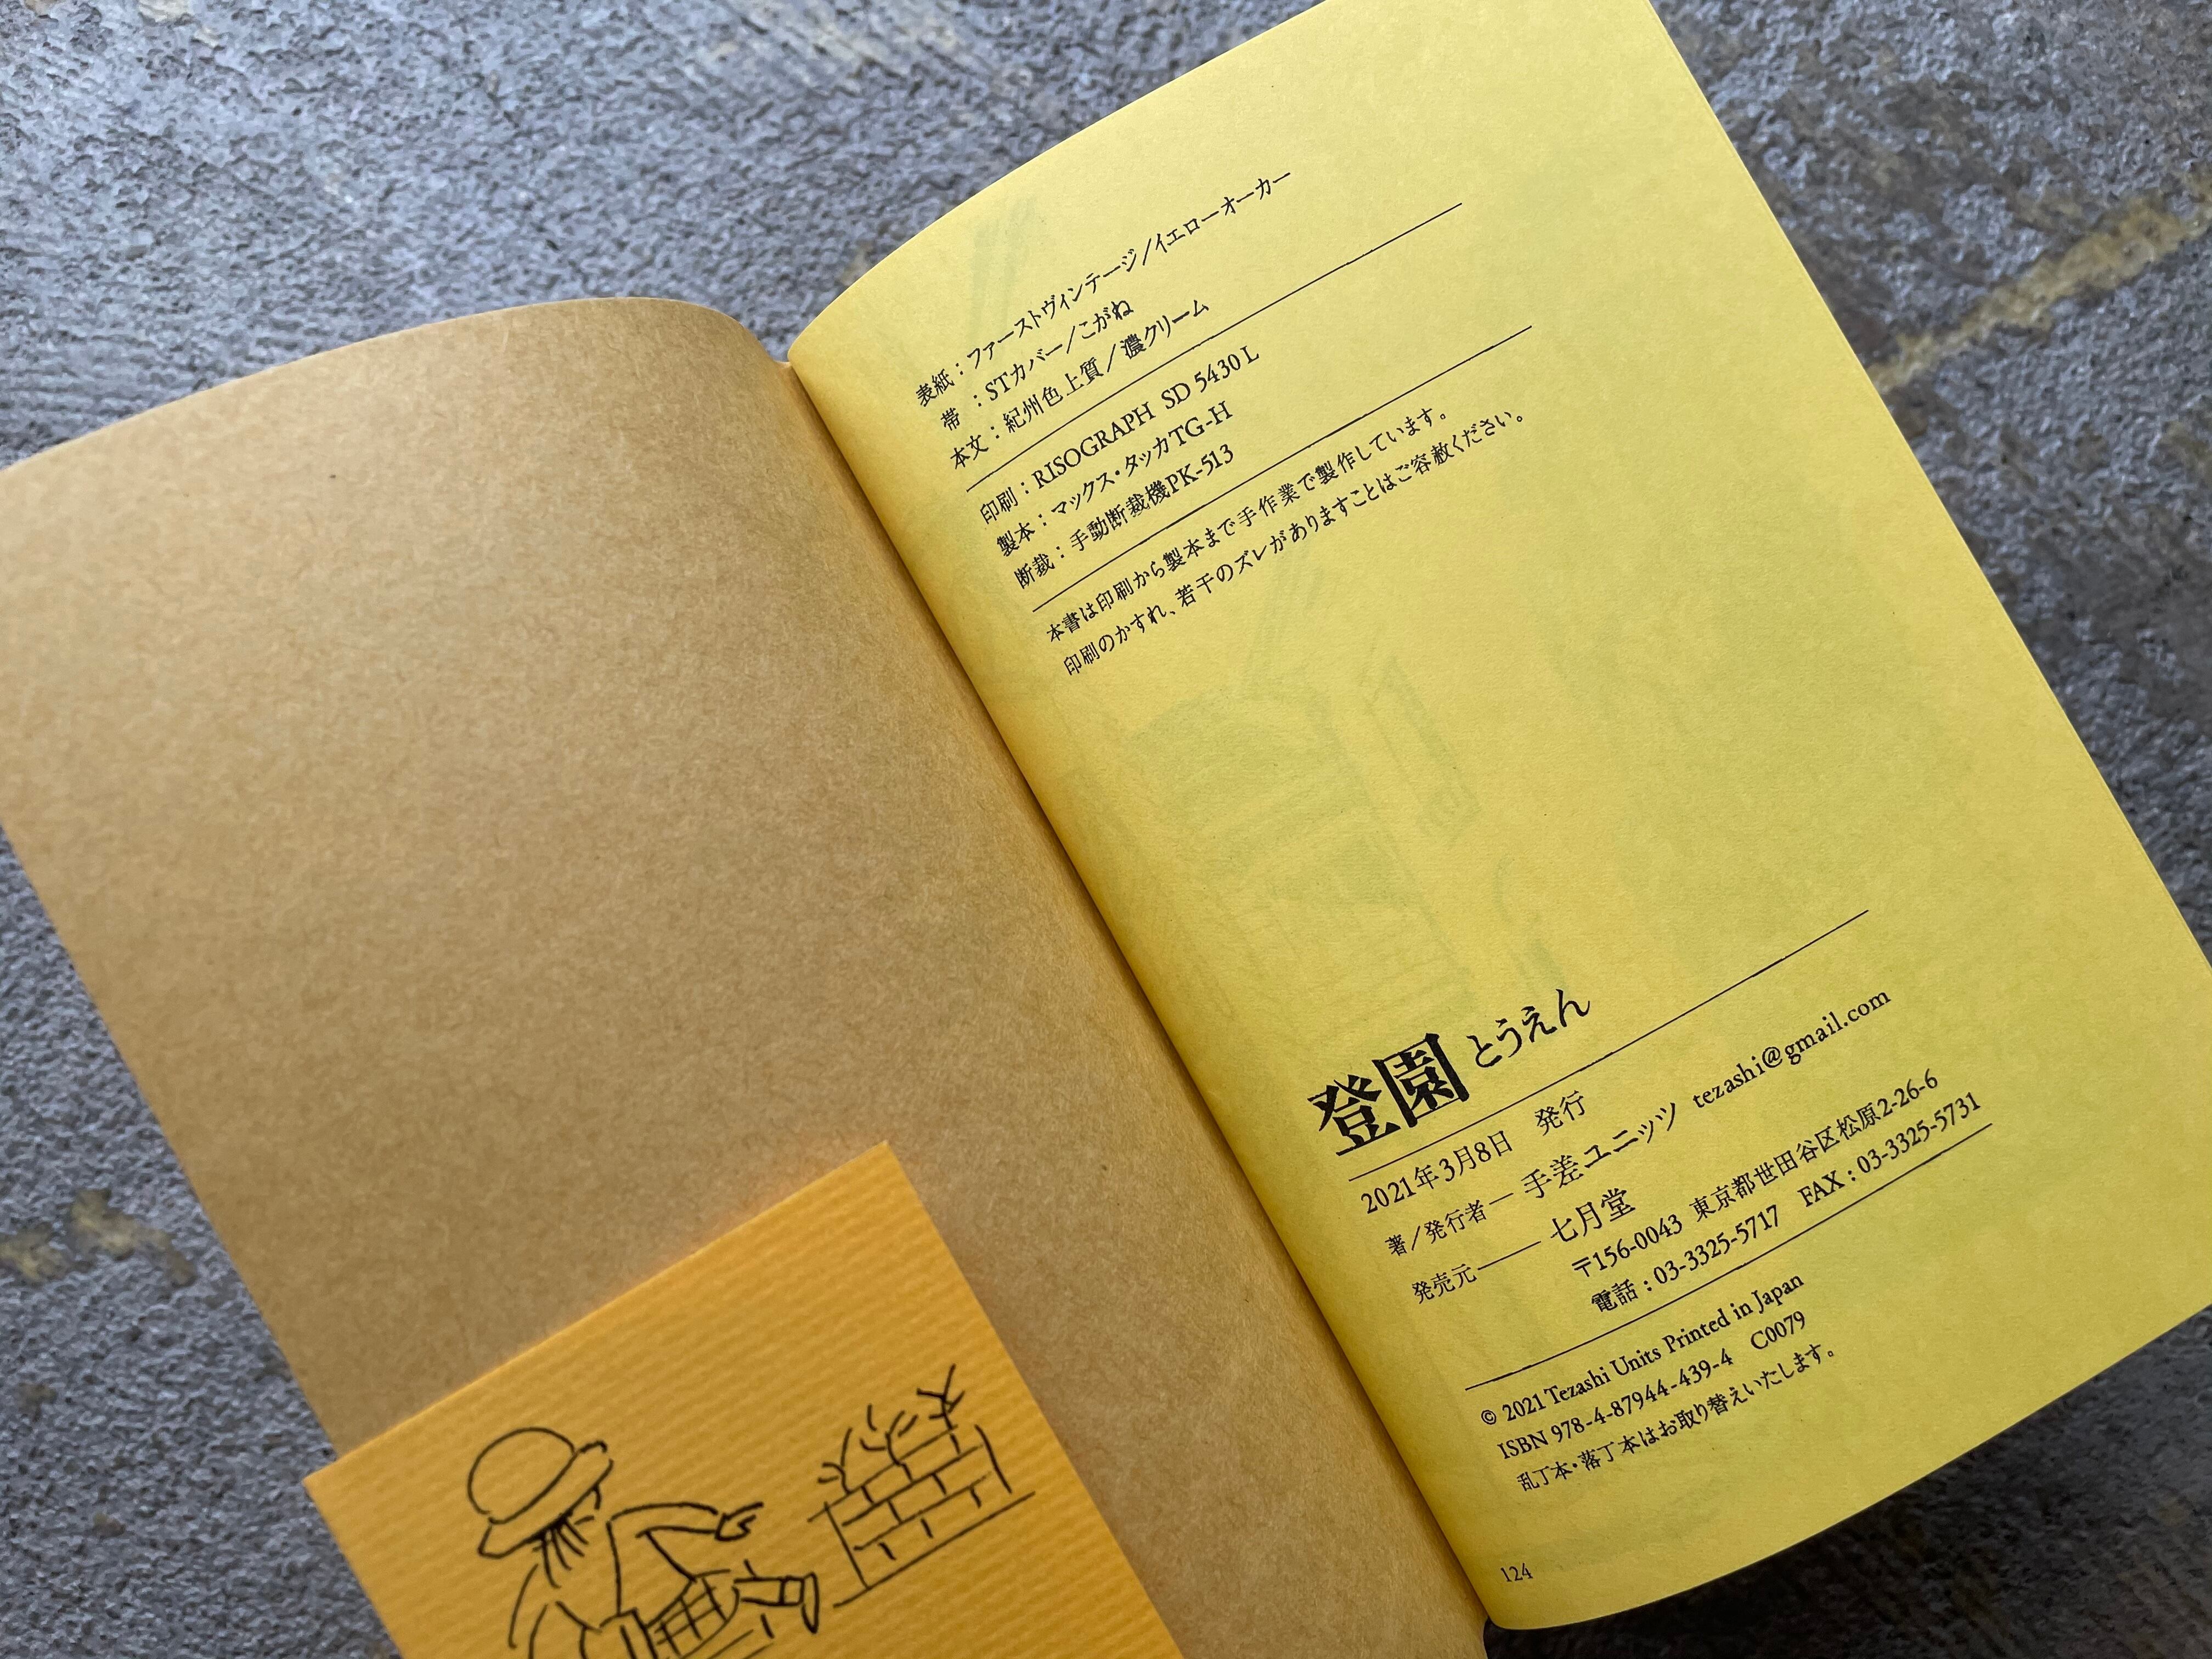 表紙：ファーストヴィンテージ／イエローオーカー
帯　：STカバー／こがね
本文：紀州色上質／濃クリーム
印刷：RISOGRAPH SD 5430 L
製本：マックス・タッカTG-H
断裁：手動断裁機PK-513
本書は印刷から製本まで手作業で製作しています。
印刷のかすれ、若干のズレがありますことはご容赦ください。
登園 とうえん
2021年3月8日　発行
著／発行者―手差ユニッツ tezashi@gmail.com
発売元――七月堂
〒156-0043 東京都世田谷区松原2-26-6
電話：03-3325-5717　FAX：03-3325-5731
© 2021 Tezashi Units Printed in Japan
ISBN 978-4-87944-439-4　C0079
乱丁本・落丁本はお取り替えいたします。
124